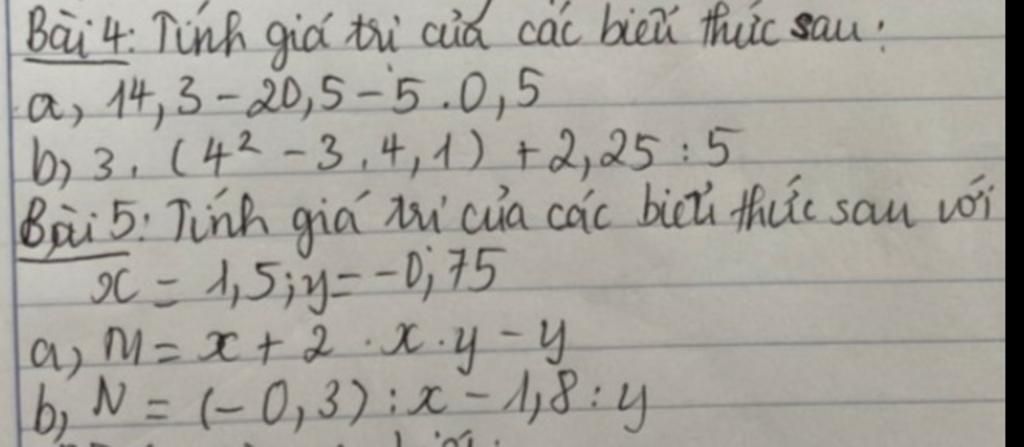 Bài 4: Tính giá trị của các biểu thức sau:
a, 14,3 - 20,5 - 5 . 0,5
b, 3 . (4² - 3 . 4,1) + 2,25 : 5
Bài 5: Tính giá trị của các biểu thức sau với
x = 1,5; y = -0,75
a, M = x + 2 . x . y - y
b, N = (-0,3) : x - 1,8 : y